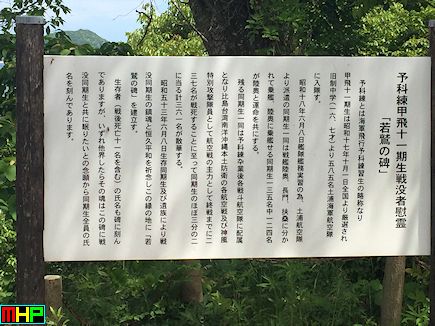 予科練甲飛十一期生戦没者慰霊
「若鷲の碑」
予科練とは海軍飛行予科練習生の略称なり
甲飛十一期生は昭和十七年十月一日全国より厳選され
旧制中学(一六、七才)より五八五名土浦海軍航空隊
に入隊す。
昭和十八年六月八日艦隊艦務実習の為、土浦航空隊
より派遣の同期生一同は戦艦陸奥、長門、扶桑に分か
れて乗艦、陸奥に乗艦せる同期生一三五名中一二四名
が陸奥と運命を共にする。
残る同期生一同は予科練卒業後各戦斗航空隊に配属
となり比島台湾南西沖縄本土防衛の各航空戦及び神風
特別攻撃隊員として航空戦の主力として終戦までに二
三七名が戦死することに至って同期生のほぼ三分の二
に当る計三六一名が散華する。
昭和五十三年六月八日生存同期生及び遺族により戦
没同期生の鎮魂と恒久平和を祈念しこの縁の地に「若
鷲の碑」を建立す。
生存者(戦後死亡十一名を含む)の氏名も碑に刻ん
でありますが、いずれ他界したらその魂はこの碑に戦
没同期生と共に眠りたいとの念願から同期生全員の氏
名を刻んであります。
MHP